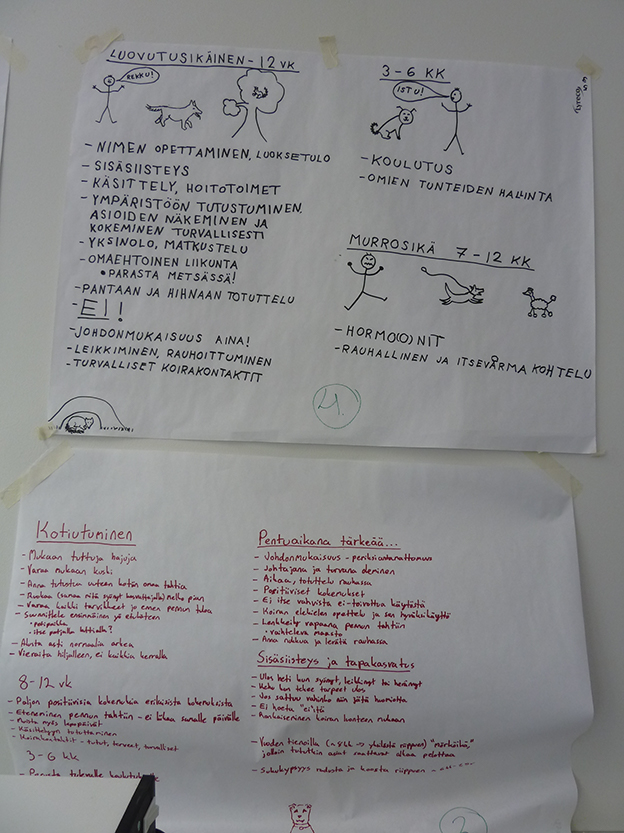 LUOVUTUSIKÄINEN - 12 VK
REKKU!
- NIMEN OPETTAMINEN, LUOKSETULO
- SISÄSIISTEYS
- KÄSITTELY, HOITOTOIMET
- YMPÄRISTÖÖN TUTUSTUMINEN,
ASIOIDEN NÄKEMINEN JA
KOKEMINEN TURVALLISESTI
- YKSINOLO, MATKUSTELU
- OMAEHTOINEN LIIKUNTA
• PARASTA METSÄSSÄ!
- PANTAAN JA HIHNAAN TOTUTTELU
- EI!
- JOHDONMUKAISUUS AINA!
- LEIKKIMINEN, RAUHOITTUMINEN
- TURVALLISET KOIRAKONTAKTIT
3 - 6 KK
ISTU!
- KOULUTUS
- OMIEN TUNTEIDEN HALLINTA
MURROSIKÄ 7 - 12 KK
- HORMO(O)NIT
- RAUHALLINEN JA ITSEVARMA KOHTELU
4.
Kotiutuminen
- Mukaan tuttuja hajuja
- Varaa mukaan kuski
- Anna tutustua uuteen kotiin omaa tahtia
- Varaa kaikki tarvikkeet jo ennen pennun tuloa
- Suunnittele ensimmäinen yö etukäteen
• petipaikka
• itse patjalla lattialla?
- Aloita asti normaalia arkea
- Vieraita hiljalleen, ei kaikkia kerralla
8-12 vk
- Paljon positiivisia kokemuksia erilaisista
- Eteneminen pennun tahtiin - ei liikaa samalle päivälle
- Muista myös lepopäivät
- Käsittelyyn totuttaminen
- Koirakontaktit - tutut, terveet, turvalliset
3-6 kk
Pentuaikana tärkeää...
- Johdonmukaisuus - periksiantamattomuus
- Johtajana ja turvana oleminen
- Aikaa, totuttelu rauhassa
- Positiiviset kokemukset
- Ei itse vahvista ei-toivottua käytöstä
- Koiran elekielen opettelu ja sen hyväksikäyttö
- Lenkkeily vapaana pennun tahtiin
• vaihteleva maasto
- Anna nukkua ja levätä rauhassa
Sisäsiisteys ja tapakasvatus
- Ulos heti kun syönyt, leikkinyt tai herännyt
- Kehu kun tekee tarpeet ulos
- Jos sattuu vahinko niin jätä huomiotta
- Ei hoeta "ei":tä
- Rankaiseminen koiran luonteen mukaan
- Vuoden tienoilla
jolloin tututkin asiat saattavat alkaa pelottaa
- Sukukypsyys rodusta ja koosta riippuen
2